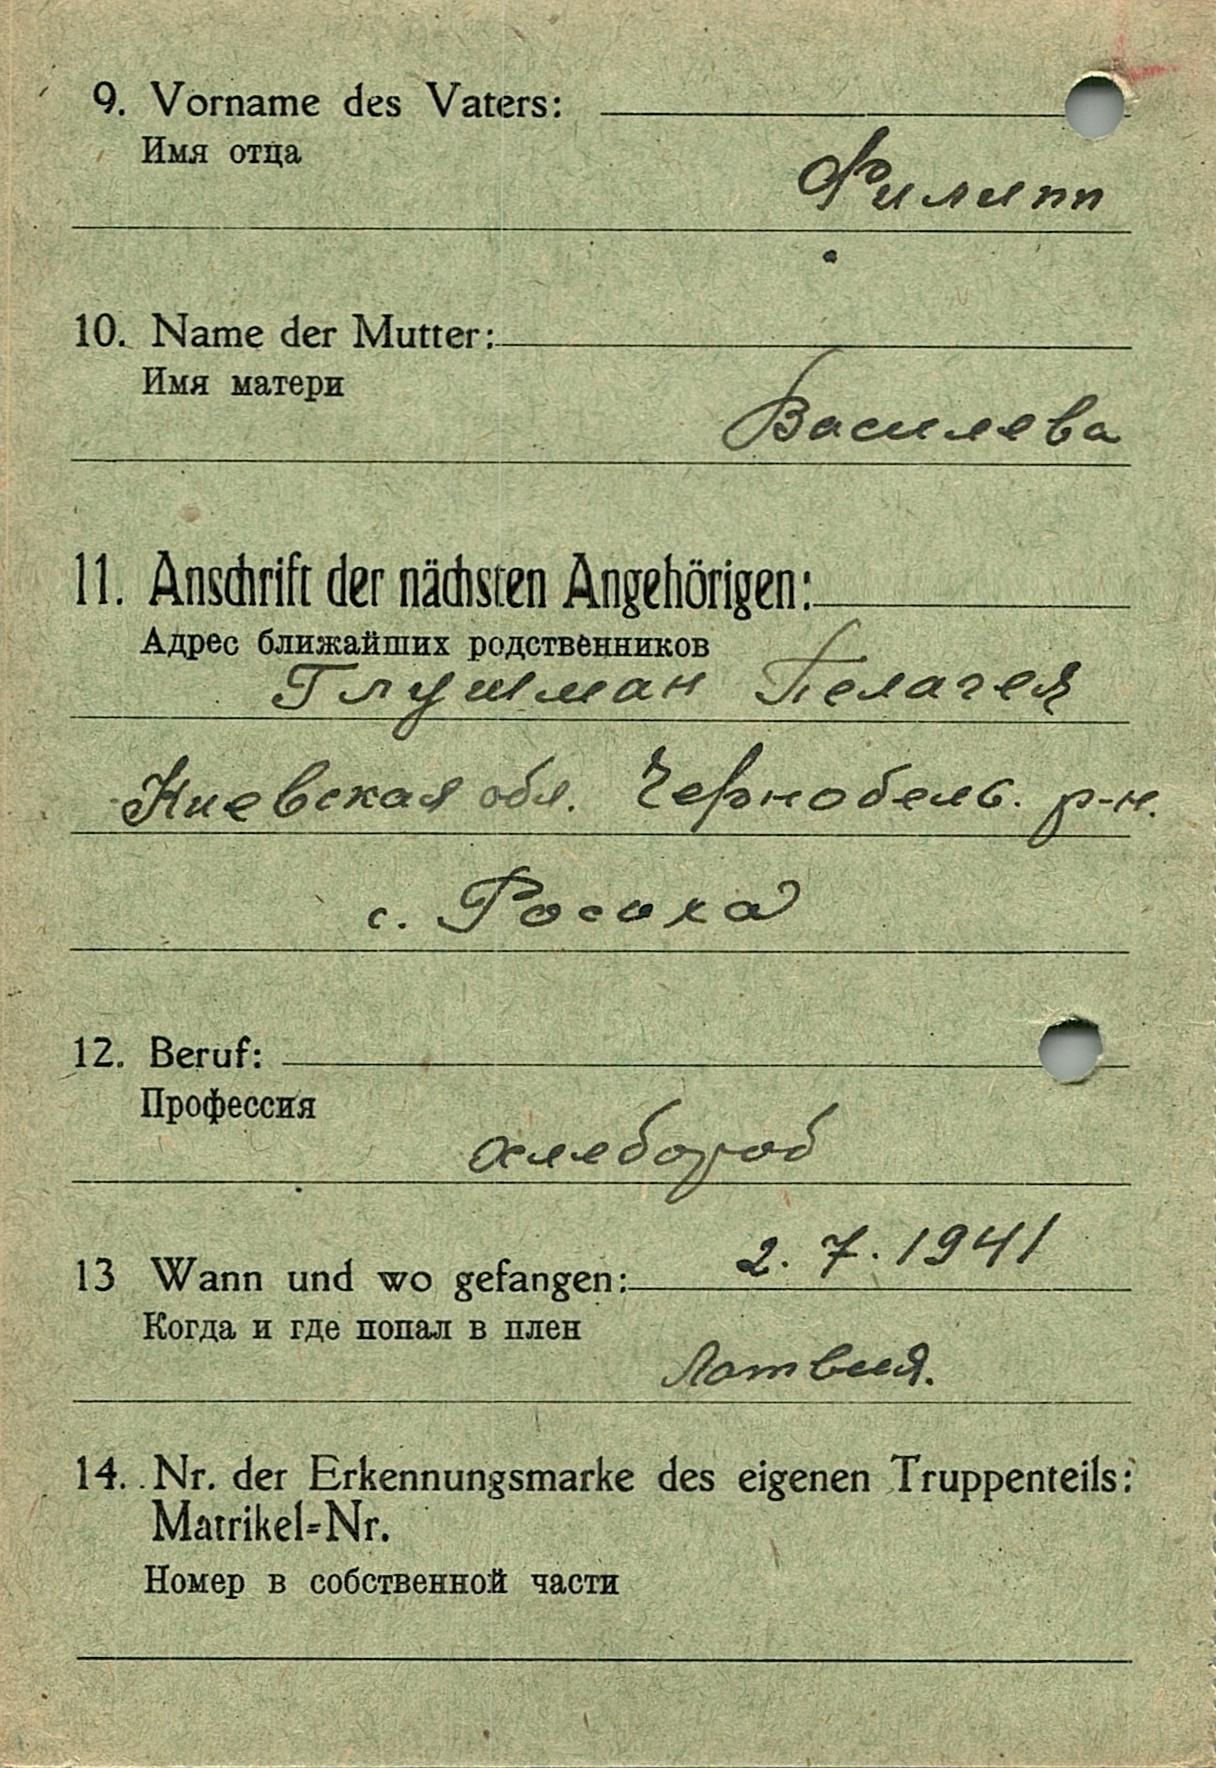 9. Vorname des Vaters:
Имя отца
Филипп
10. Name der Mutter:
Имя матери
Василева
11. Anschrift der nächsten Angehörigen:
Адрес ближайших родственников
Глушман Пелагея
Киевская обл. Чернобель. р-н.
с. Росоха
12. Beruf:
Профессия
хлебороб
2.7.1941
13 Wann und wo gefangen:
Когда и где попал в плен
Латвия.
14. Nr. der Erkennungsmarke des eigenen Truppenteils:
Matrikel-Nr.
Номер в собственной части